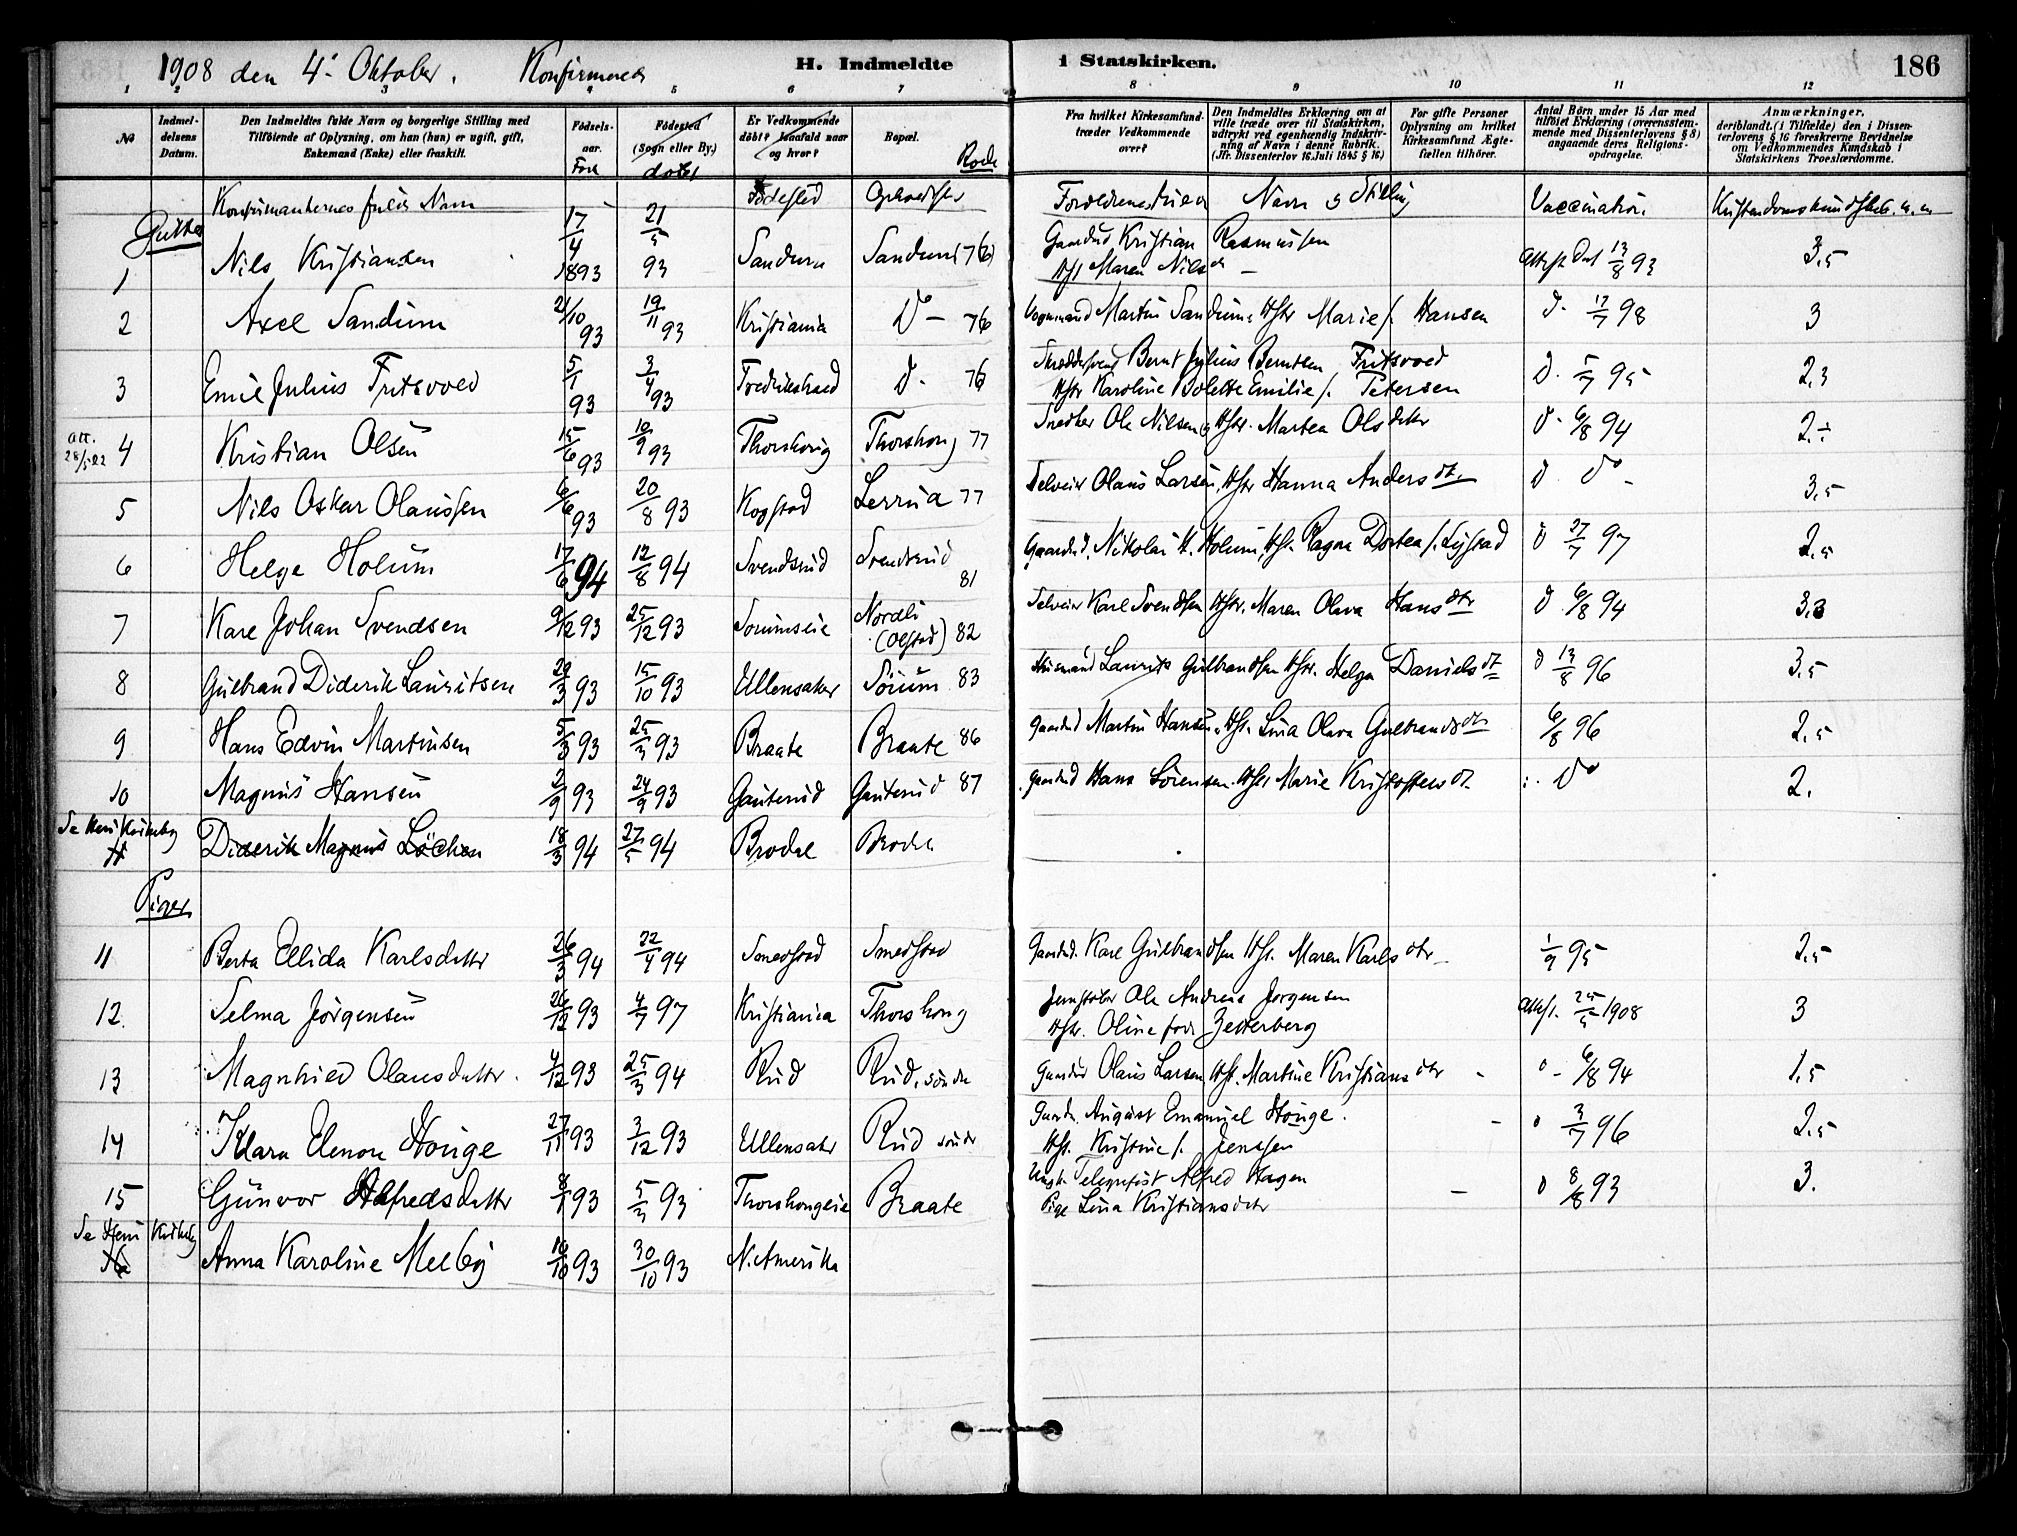 1908 den 4' Oktober. Konfirmerede H. Indmeldte i Statskirken. 186
1 2 3 4 5 6 7 8 9 10 11 12
№
Indmeldelsens Datum.
Den Indmeldtes fulde Navn og borgerlige Stilling med
Tilföiende af Oplysning, om han (hun) er ugift, gift,
Enkemand (Enke) eller fraskilt.
Födselsaar.
Född
Födested
(Sogn eller By.)
döbt
Er Vedkommende
döbt? Isaafald naar
og hvor?
Bopæl.
Rode
Fra hvilket Kirkesamfund
træder Vedkommende
over?
Den Indmeldtes Erklæring om at
ville træde over til Statskirken,
udtrykt ved egenhændig Indskrivning af Navn i denne Rubrik.
(Jfr. Dissenterlov 16. Juli 1845 § 16)
For gifte Personer
Oplysning om hvilket
Kirkesamfund Ægtefællen tilhörer.
Antal Börn under 15 Aar med
tilföiet Erklæring (overensstemmende med Dissenterlovens § 8)
angaaende deres Religionsopdragelse.
Anmærkninger,
deriblandt (i Tilfælde) den i Dissenterlovens § 16 foreskrevne Bevidnelse
om Vedkommendes Kundskab i
Statskirkens Troeslærdomme.
Konfirmanternes fulde Navn Födested Opholdssted Forældrenes fulde Navn og Stilling Vaccination Kristendomskundskab m. m
Gutter
1 Nils Kristiansen 17/4 1893 21/5 93 Sandum Sandum 76 Gaardbd Kristian Rasmussen Attest Dat 13/8 93 3,5
Hst Maren Nilsdr
2 Axel Sandum 21/10 93 19/11 93 Kristiania Do 76 Vognmand Martin Sandum, Hstr Marie f. Hansen d. 17/7 98 3
3 Emil Julius Fritsvold 5/1 93 3/4 93 Fredrikstad d. 76 Skræddersvend Bernt Julius Berntsen Fritsvold d. 5/7 95 2,3
Hstr Karoline Bolette Emilie f. Petersen
att. 28/5 22
4 Kristian Olsen 15/6 93 10/9 93 Thorshoug Thorshoug 77 Snedker Ole Nilsen og Hstr. Martea Olsdatter d. 6/8 94 2.÷
5 Nils Oskar Olaussen 6/6 93 20/8 93 Kogstad Lerrua 77 Selveier Olaus Larsen, Hstr Hanna Andersdt. d do 3,5
6 Helge Holum 17/6 94 12/8 94 Svendsrud Svendsrud 81 Gaardbd. Nikolai H. Holum, Hst. Ragna Dortea f. Lystad d 27/7 97 2,5
7 Karl Johan Svendsen 9/12 93 25/12 93 Sorumseie Nordli (Olstad) 82 Selveier Karl Svendsen Hstr. Maren Olava Hansdtr d. 6/8 94 3,3
8 Gulbrand Diderik Lauritsen 29/3 93 15/10 93 Ullensaker Sörum 83 Husmand Laurits Gulbrandsen Hstr. Helga Danielsdt d 13/8 96 3,5
9 Hans Edvin Martinsen 5/3 93 25/3 93 Braate Braate 86 Gaardbd Martin Hansen, Hst. Lina Olava Gulbrandsdt 6/8 96 2,5
10 Magnus Hansen 2/9 93 24/9 93 Gauterud Gauterud 87 Gaardbd Hans Sörensen Hstr Marie Kristoffersdt do 2.
11 Diderik Magnus Löchen 18/3 94 27/5 94 Brodal Brodal
Piger
11 Berta Ellida Karlsdatter 26/3 94 22/4 94 Smedstad Smedstad Gaardbd. Karl Gulbrandsen Hst. Maren Karlsdtr 1/9 95 2,5
12. Selma Jörgensen 26/12 93 4/7 97 Kristiania Thorshoug Jernstöber Ole Andreas Jorgensen Attest. 25/5 1908 3
Hstr. Oline föd Zetterberg
13 Magnhild Olausdatter 4/12 93 25/3 94 Rud Rud, söndre Gaardbr Olaus Larsen Hst. Martine Kristiansdtr 6/8 94 1,5
14 Klara Elenore Houge 27/11 93 3/12 93 Ullensaker Rud söndr Gaardbr. August Emanuel Houge. 3/7 96 2,5
Hst. Kristine f. Jenssen
15 Gunvor Alfredsdatter 8/1 93 5/3 93 Thorshougeie Braate Ungk. Telegrafist Alfred Hagen d 8/8 93 3.
Pige Lina Kristiansdatr
16 Anna Karoline Melby 10/10 93 30/10 93 N. Amerika